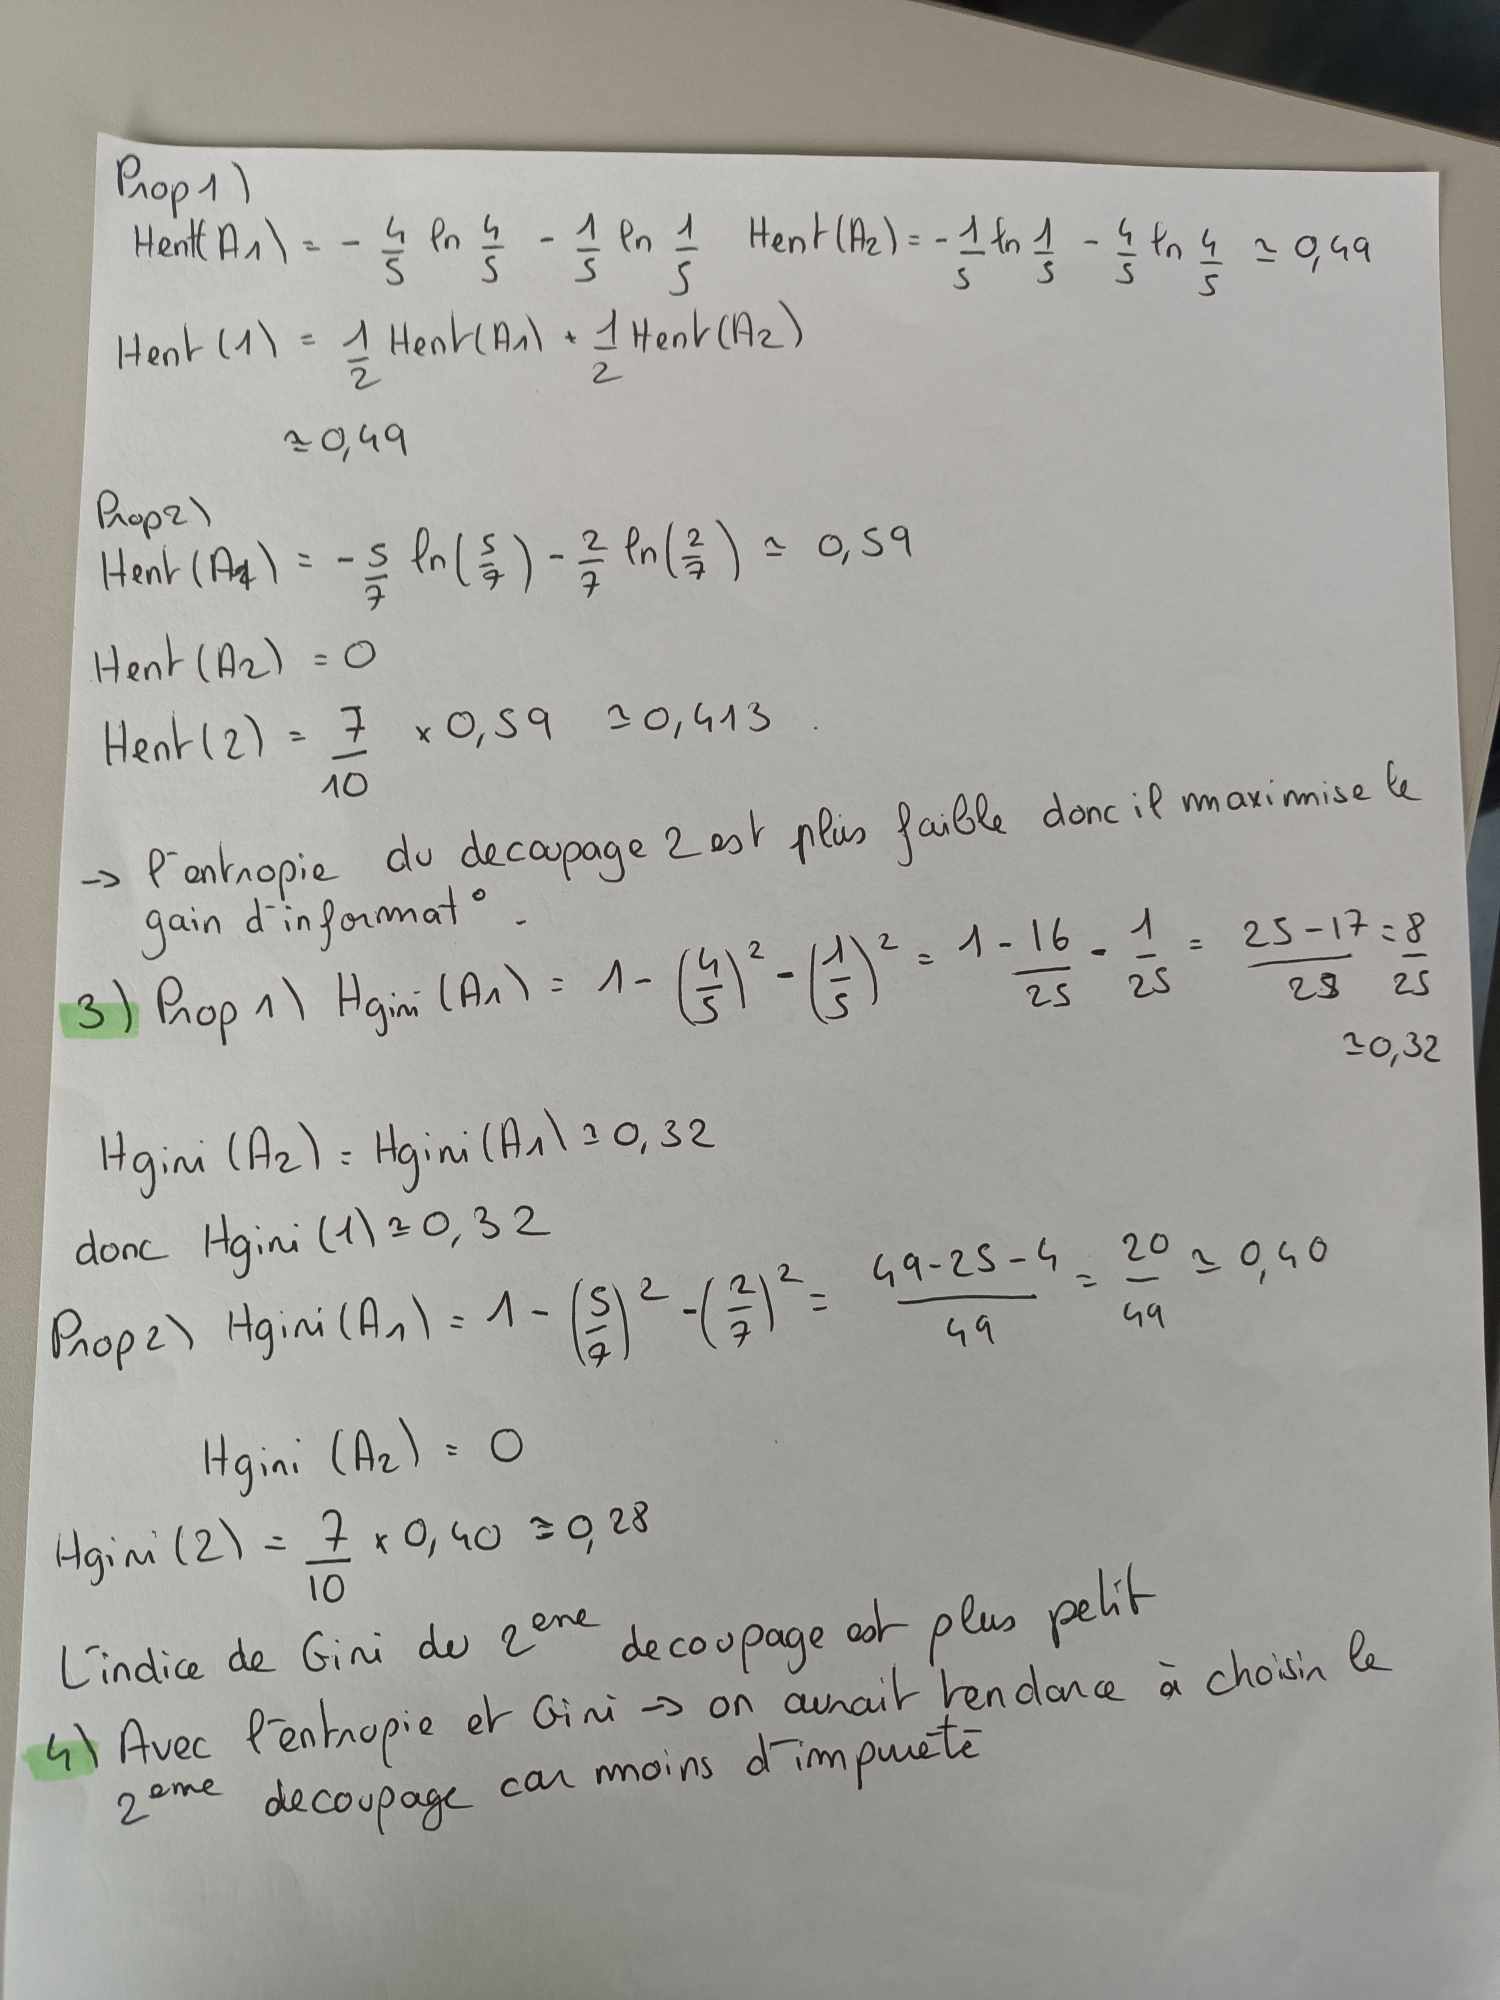 Prop 1)
Hent(A1) = - 4/5 ln 4/5 - 1/5 ln 1/5 Hent(A2) = - 1/5 ln 1/5 - 4/5 ln 4/5 ≃ 0,49
Hent(1) = 1/2 Hent(A1) + 1/2 Hent(A2)
≃ 0,49
Prop 2)
Hent(A1) = - 5/7 ln(5/7) - 2/7 ln(2/7) ≃ 0,59
Hent(A2) = 0
Hent(2) = 7/10 × 0,59 ≃ 0,413
→ l'entropie du decoupage 2 est plus faible donc il maximise le
gain d'informat°.
3) Prop 1) Hgini(A1) = 1 - (4/5)² - (1/5)² = 1 - 16/25 - 1/25 = 25-17/25 = 8/25
≃ 0,32
Hgini(A2) = Hgini(A1) ≃ 0,32
donc Hgini(1) ≃ 0,32
Prop 2) Hgini(A1) = 1 - (5/7)² - (2/7)² = 49-25-4/49 = 20/49 ≃ 0,40
Hgini(A2) = 0
Hgini(2) = 7/10 × 0,40 ≃ 0,28
L'indice de Gini du 2eme decoupage est plus petit
4) Avec l'entropie et Gini → on aurait tendance à choisir le
2eme decoupage car moins d'impureté